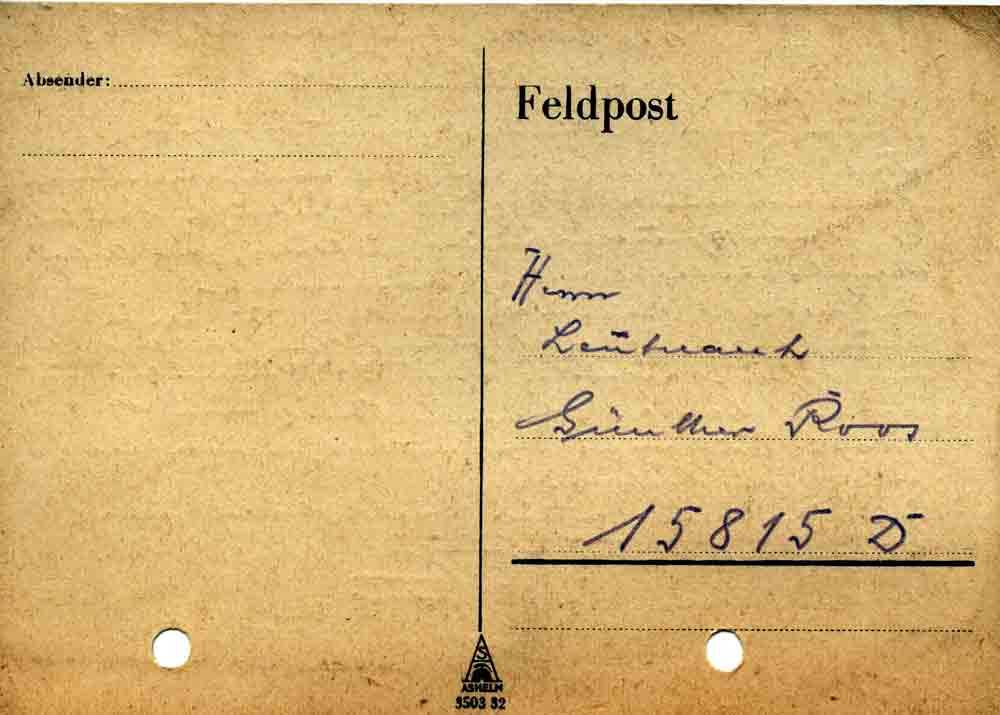 Absender:
Feldpost
Herrn
Leutnant
Günther Roos
15815 D
ASHELM
3503 32